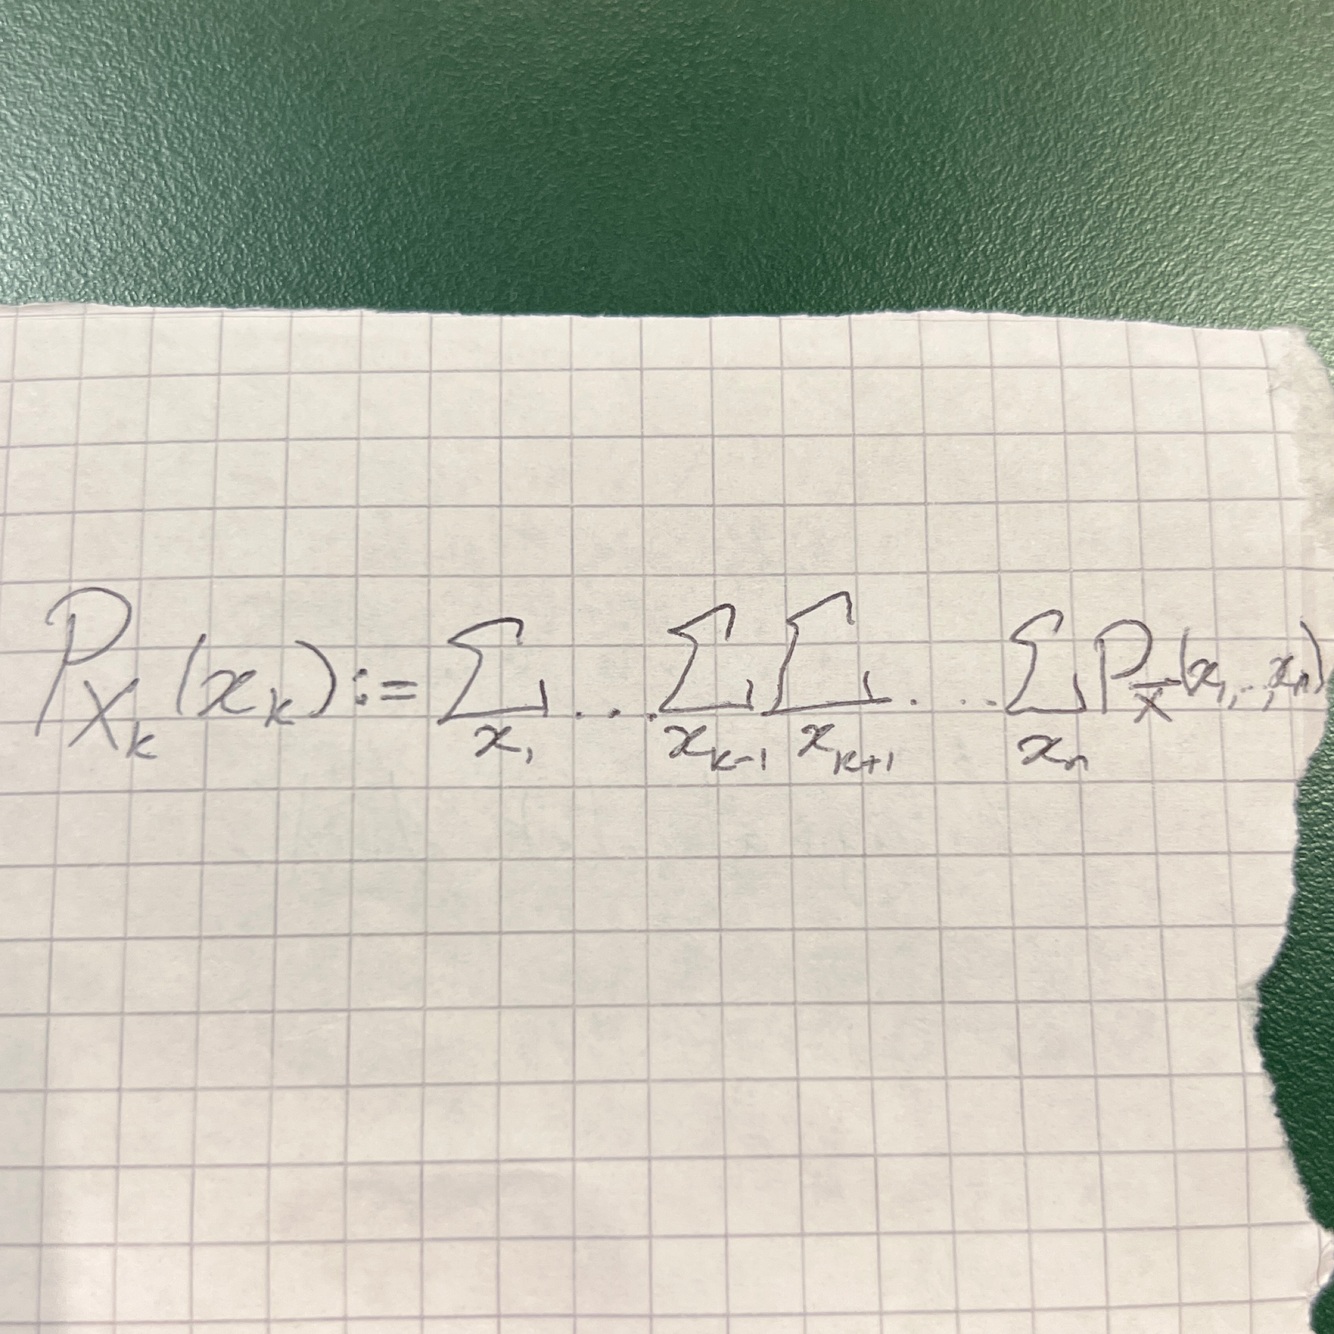 P_{X_k}(x_k) := \sum_{x_1} ... \sum_{x_{k-1}} \sum_{x_{k+1}} .... \sum_{x_n} P_{\overline{X}}(x_1, .., x_n)